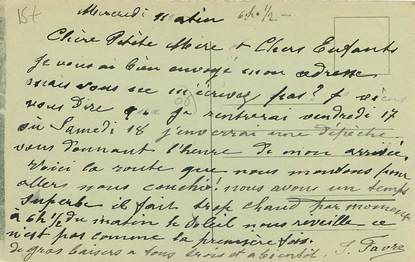 15t
Mercredi matin 6h 1/2 —
Chère Petite Mère et Chers Enfants
je vous ai bien envoyé mon adresse
mais vous ne m'écrivez pas? Je viens
vous dire que je rentrerai vendredi 17
ou Samedi 18 j'enverrai une dépêche
vous donnant l'heure de mon arrivée,
Voici la route que nous montons pour
aller nous couché nous avons un temps
superbe il fait trop chaud par moment
à 6h 1/2 du matin le soleil nous réveille ce
n'est pas comme la première fois.
de gros baisers a tous trois et a bientôt. J. Favre